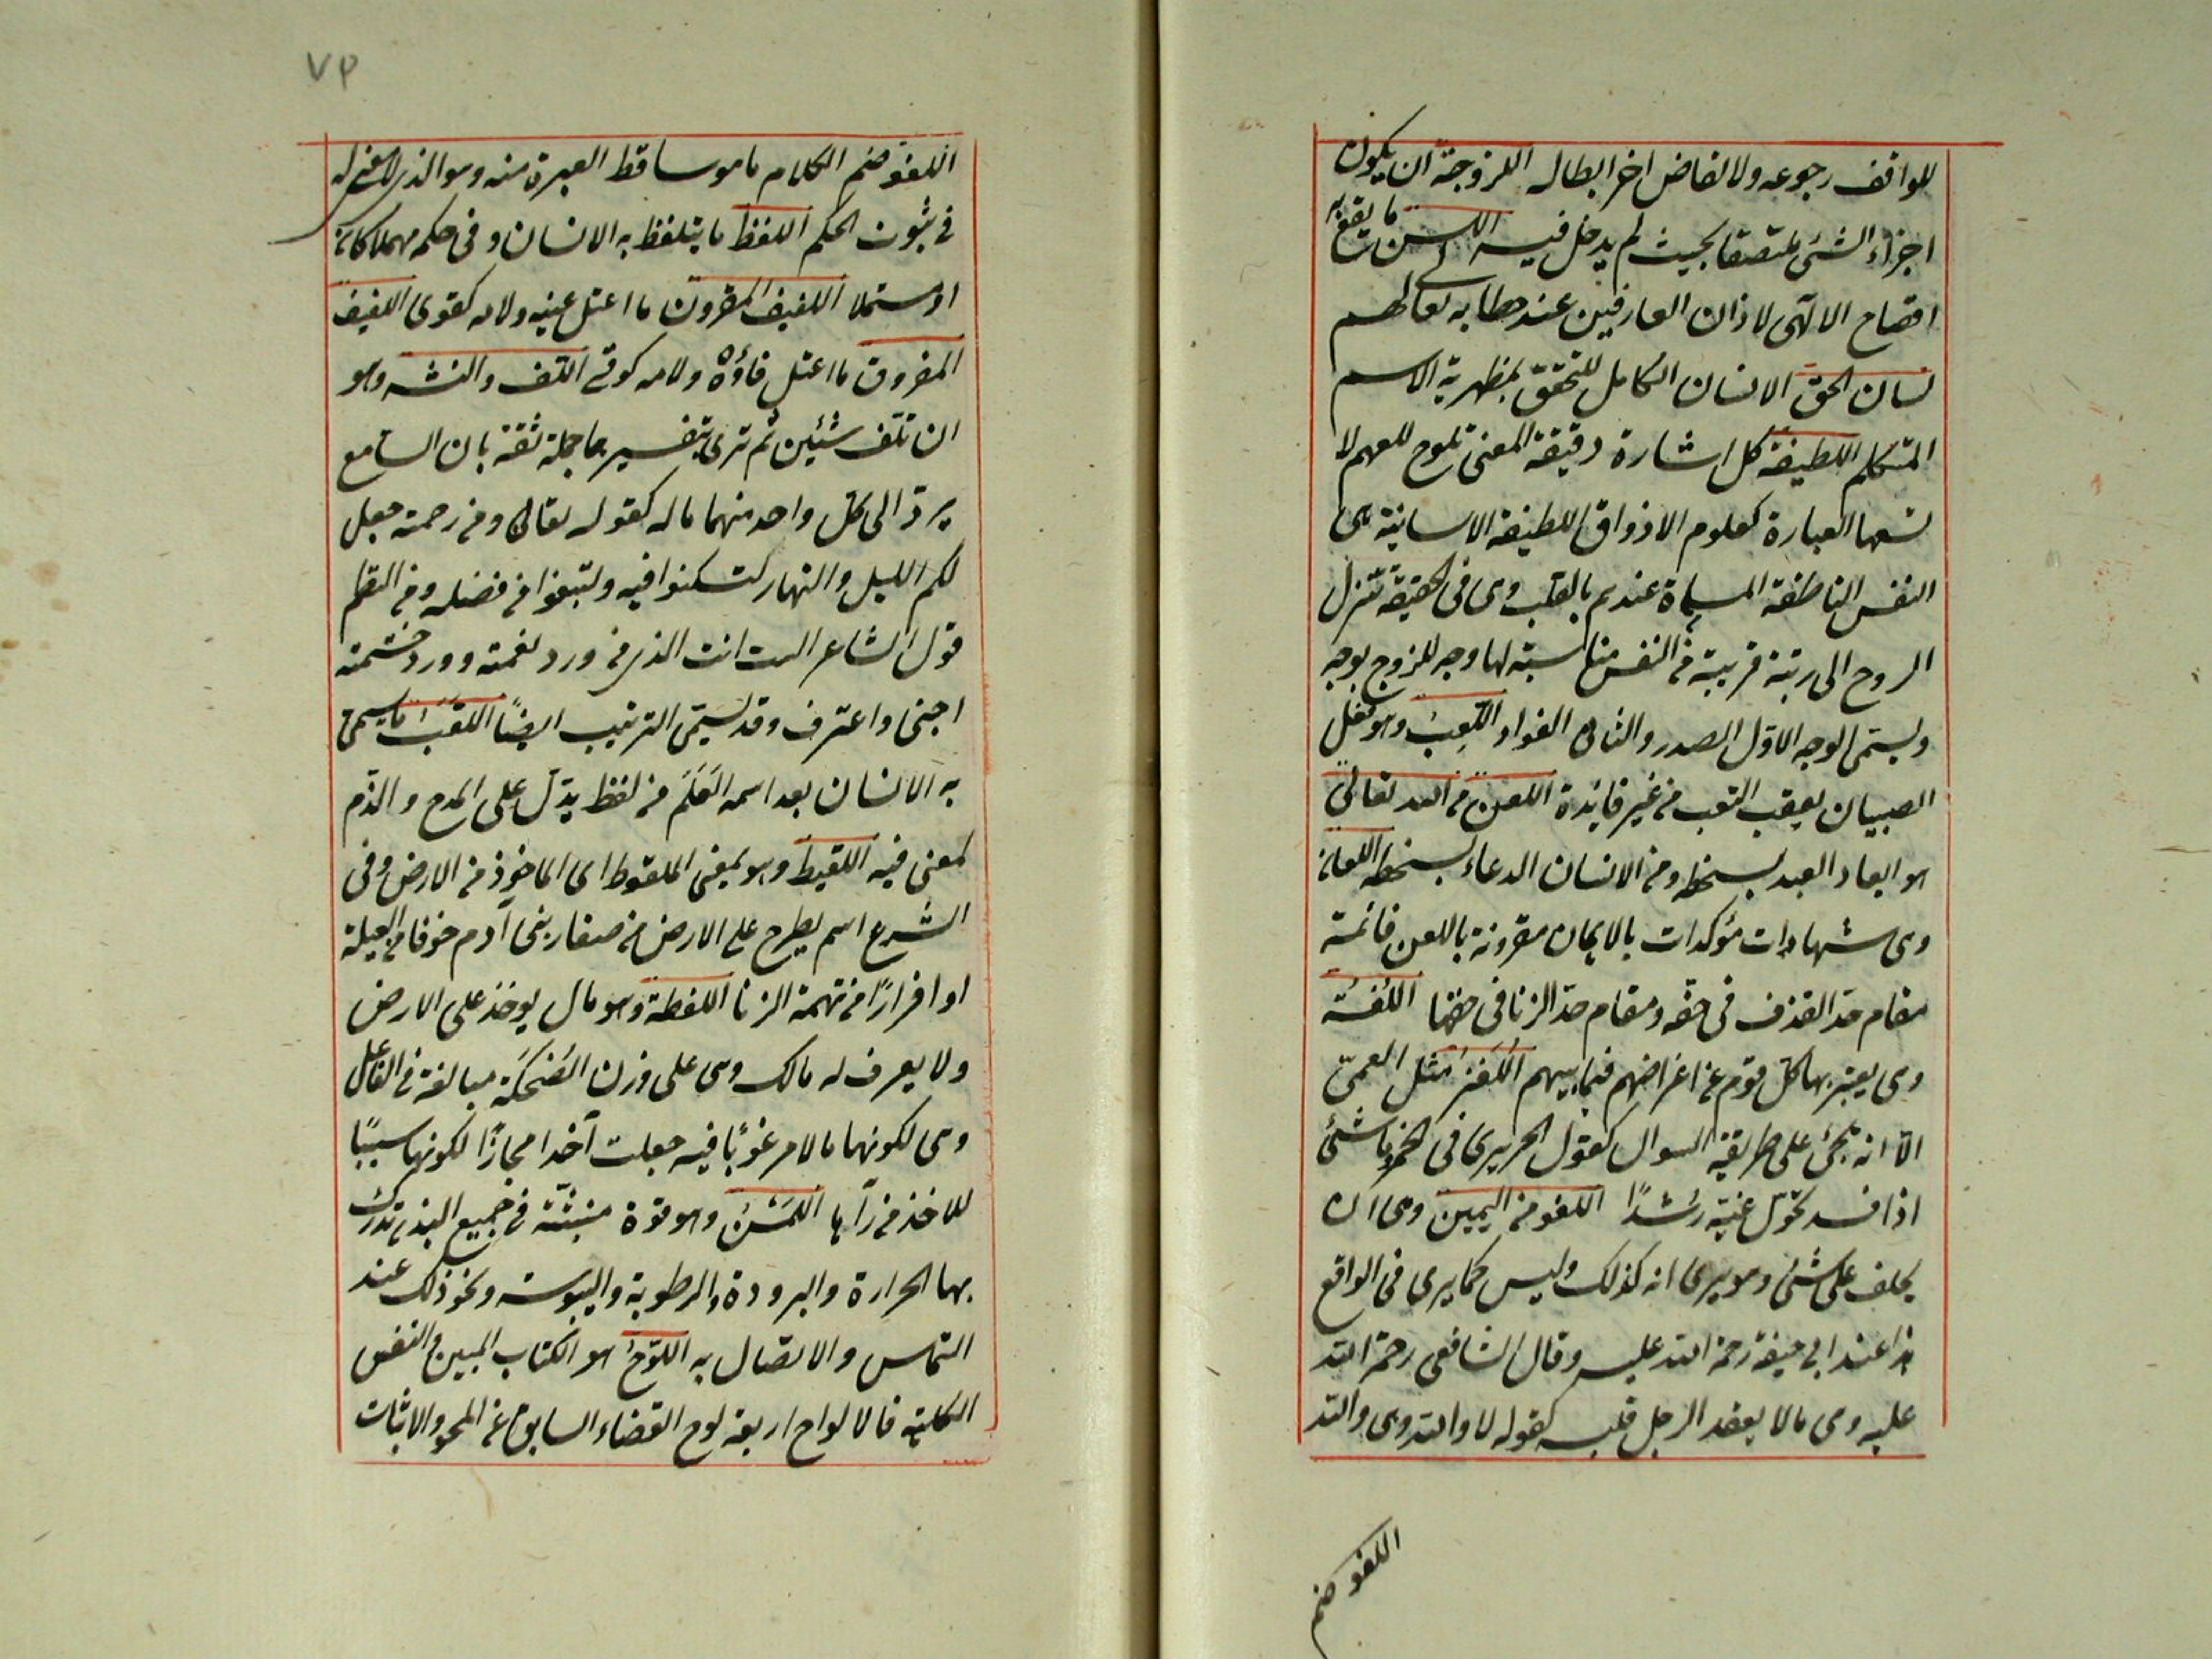 للواقف رجوعه ولا لقاض اخر ابطاله اللزوجة ان يكون
اجزاء الشئ ملتصقا بحيث لم يدخل فيه اللسن ما يقع به
افصاح الالٓهى لاذان العارفين عند خطابه تعالى لهم
لسان الحق الانسان الكامل للتحقق بمظهرية الاسم
المتكلم اللطيفة كل اشارة دقيقة المعنى تلوح للفهم لا
تسعها العبارة كعلوم الاذواق اللطيفة الانسانية هى
النفس الناطقة المسماة عندهم بالقلب وهى فى الحقيقة تنزل
الروح الى رتبة قريبة من النفس مناسبة لها وجه للزوج بوجه
ويسمى الوجه الاول الصدر والثانى الفؤاد اللعب وهو فعل
الصبيان يعقب التعب من غير فائدة اللعن من الله تعالى
هو ابعاد العبد بسخطه ومن الانسان الدعاء بسخطه اللعان
وهى شهادات مؤكدات بالايمان مقرونة باللعن قائمة
مقام حد القذف فى حقه ومقام حد الزنا فى حقها اللغة
وهى يعبر بها كل قوم عن اغراضهم فيما بينهم اللغز مثل المعمى
الا انه يجئ على طريقة السوال كقول الحريرى فى الخمر ما شئ
اذا فسد تحول غيه رشدًا اللغو من اليمين وهى ان
يحلف على شئ وهو يرى انه كذلك وليس كما يرى فى الواقع
هذا عند ابى حنيفة رحمة الله عليه وقال الشافعى رحمة الله
عليه وهى ما لا يعقد الرجل قلبه كقوله لا والله وبلى والله
اللغو ضم
٧٣
اللغو ضم الكلام ما هو ساقط العبرة منه وهو الذى لا معنى له
فى ثبوت الحكم اللفظ ما يتلفظ به الانسان وفى حكمه مهملا كان
او مستعملا اللفيف المقرون ما اعتل عينه ولامه كقوى اللفيف
المفروق ما اعتل فاؤه ولامه كوقى اللف والنشر وهو
ان تلف شيئين ثم ترى بتفسيرهما جملة ثقة بان السامع
يرد الى كل واحد منهما ما له كقوله تعالى ومن رحمته جعل
لكم الليل والنهار لتسكنوا فيه ولتبتغوا من فضله ومن النظم
قول الشاعر الست انت الذى من ورد نعمته وورد حشمته
اجنى واعترف وقد يسمى الترتيب ايضًا اللقب ما يسمى
به الانسان بعد اسمه العلم من لفظ يدل على المدح والذم
لمعنى فيه اللقيط وهو بمعنى الملقوط اى الماخوذ من الارض وفى
الشرع اسم يطرح على الارض من صغار بنى آدم خوفا من العيلة
او افرارًا من تهمة الزنا اللقطة وهو مال يوخذ على الارض
ولا يعرف له مالك وهى على وزن الضحكة مبالغة فى الفاعل
وهى لكونها مالا مرغوبًا فيه جعلت آخذا مجازًا لكونها سببًا
للاخذ من رآها اللمس وهو قوة منبثة فى جميع البدن تدرك
بها الحرارة والبرودة والرطوبة واليبوسة ونحو ذلك عند
التماس والاتصال به اللوح هو الكتاب المبين والنفس
الكلية فالالواح اربعة لوح القضاء السابق عن المحو والاثبات